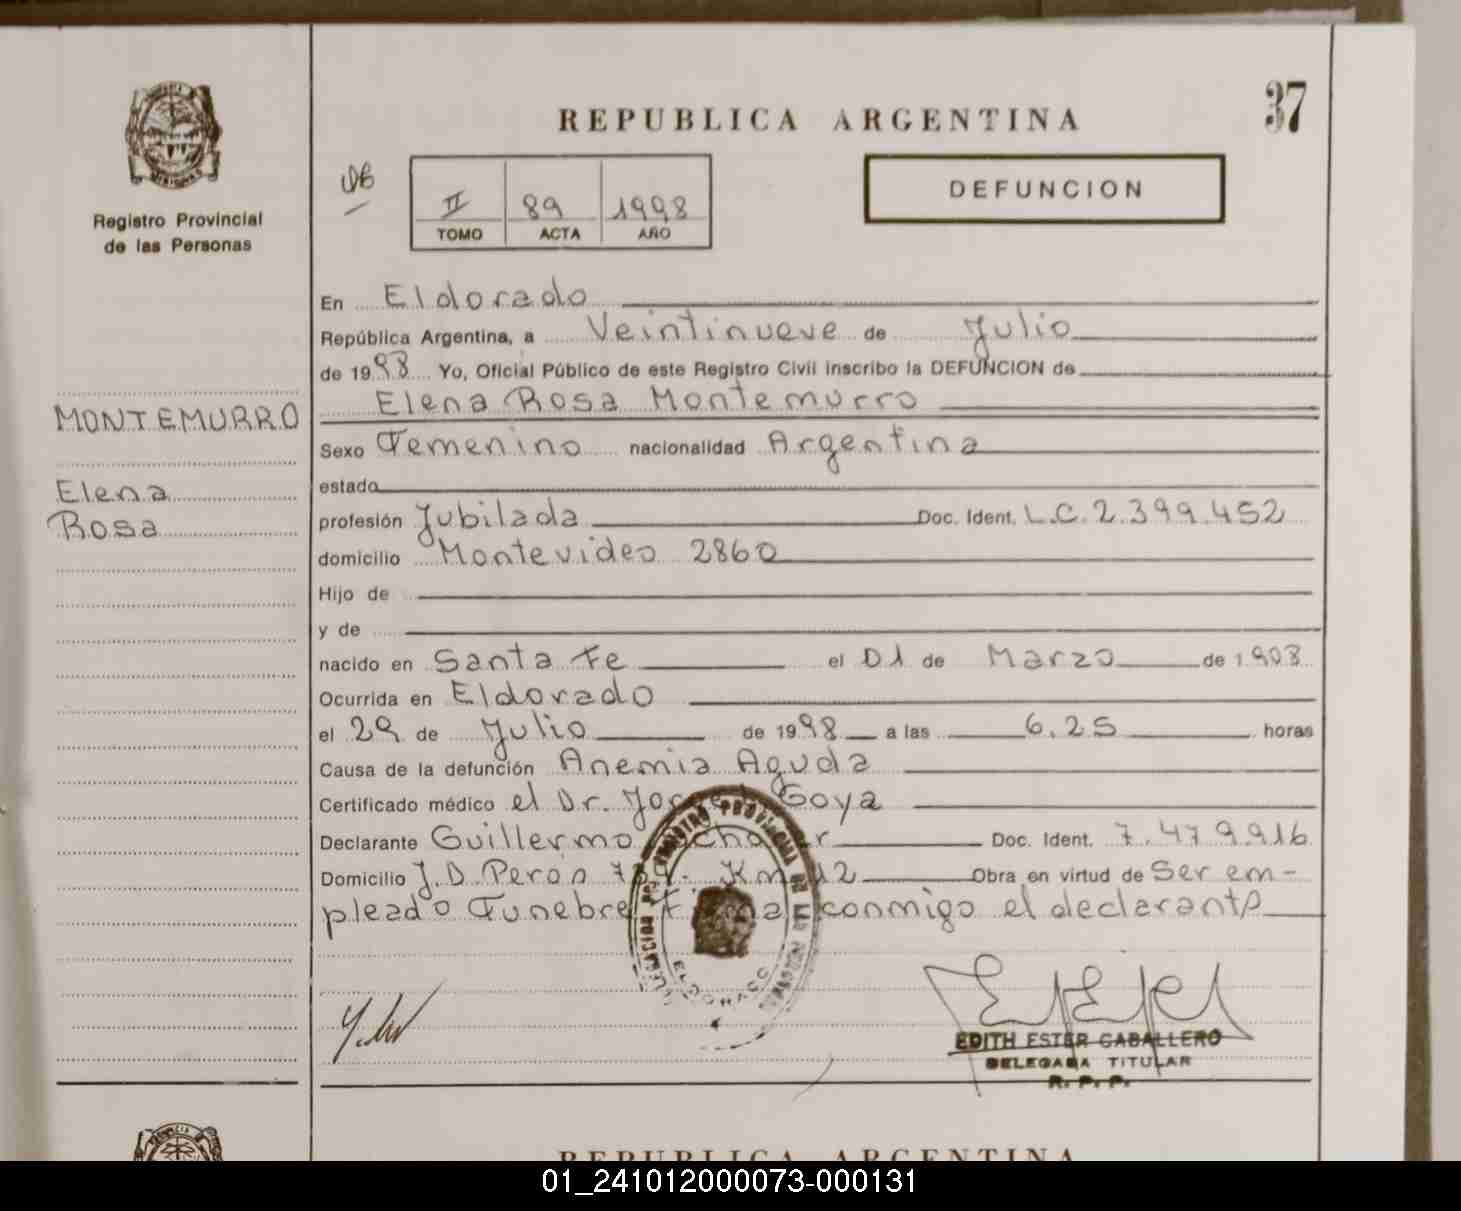 REPUBLICA ARGENTINA
37
Registro Provincial
de las Personas
II 89 1998
TOMO ACTA AÑO
DEFUNCION
MONTEMURRO
Elena
Rosa
En Eldorado
República Argentina, a Veintinueve de Julio
de 1998 Yo, Oficial Público de este Registro Civil inscribo la DEFUNCION de
Elena Rosa Montemurro
Sexo Femenino nacionalidad Argentina
estado
profesión Jubilada Doc. Ident. L.C. 2.399.452
domicilio Montevideo 2860
Hijo de
y de
nacido en Santa Fe el 01 de Marzo de 1908
Ocurrida en Eldorado
el 29 de Julio de 1998 a las 6,25 horas
Causa de la defunción Anemia Aguda
Certificado médico el Dr. Jorge Goya
Declarante Guillermo Doc. Ident. 7.479.916
Domicilio J.D. Perón Km 12 Obra en virtud de Ser em-
pleado Funebre Firma conmigo el declarante
REGISTRO PROVINCIAL DE LAS PERSONAS
ELDORADO
EDITH ESTER CABALLERO
DELEGADA TITULAR
R. P. P.
REPUBLICA ARGENTINA
01_241012000073-000131